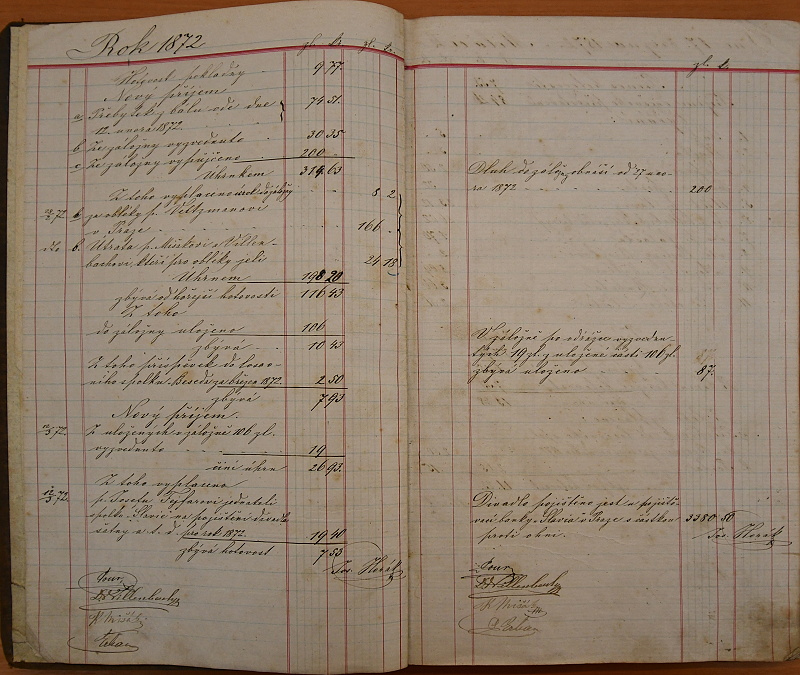 Rok 1872
zl. kr. zl. kr.
Hotovost pokladny 9 77.
Nový příjem
a. Přebytek z balu ode dne 74 51.
12. února 1872.
b Ze záložny vyzvednuto 30 35
c Ze záložny vypůjčeno 200
Úhrnkem 314.63
Z toho vyplaceno úrok do záložny 8 2
72 b. za obleky p. Veltzmanovi
v Praze 166 -
dto b. Útrata p. Miškovi a Vellen-
bachovi, kteří pro obleky jeli 24 18
Úhrnem 198 20
zbývá od hořejší hotovosti 116 43
Z toho
do záložny uloženo 106
zbývá 10 43
Z toho příspěvek do
spolku Beseda za březen 1872. 2 50
zbývá 7 93
Nový příjem.
72. Z uložených v záložně 106 zl.
vyzvednuto 19
činí úhrn 26 93.
Z toho vyplaceno
72. p. Josefu jednateli
spolku Slavie na pojištění divadla
a t. d. pro rok 1872. 19 40
zbývá hotovost 7 53
Jos. Horák
zl. kr.
Dluh do zálož. obnáší od 27 úno-
ra 1872 200
V záložně po odražení vyzvednu-
tých 19 zl. z uložené části 106 zl.
zbývá uloženo 87.
Divadlo pojištěno jest u pojišťo-
vací banky Slavia v Praze s částkou 3380 50
proti ohni.
Jos. Horák